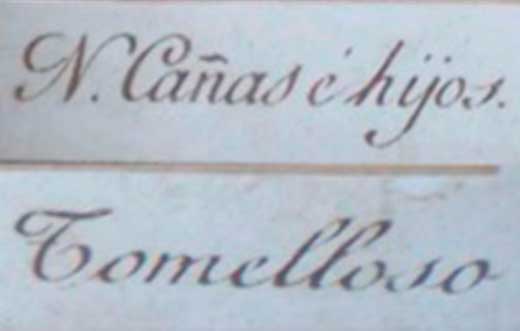 N. Cañas é hijos.
Tomelloso